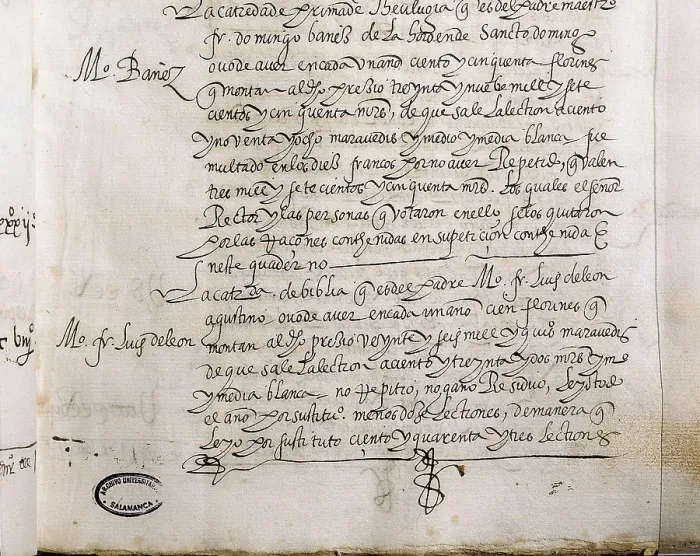 La catreda de prima de theulugia q es del padre maestro
fr. domingo bañes de la horden de Sancto domingo
M.o Bañez
ovo de aver en cada un año ciento y cinquenta florines
q montan al dho preçio treynta y nuebe mill y sete
cientos y cinquenta mrs, de que sale la lection a ciento
y noventa y ocho maravedis y medio y media blanca fue
multado en los diez francos por no aver Repetido, q valen
tres mill y sete cientos y cinquenta mrs. los quales el señor
Rector y las personas q votaron en ello, se los quitaron
por las Raçones conthenidas en su peticion conthenida E
neste quaderno
La catreda de biblia q es del padre M.o fr. luis de leon
agustino ovo de aver en cada un año cien florines q
M.o fr. luis de leon
montan al dho preçio veynte y seis mill y quios maravedis
de que sale la lection a ciento y treynta y dos mrs y mo
y media blanca no Repitio, no gano Residuo, leyo todo
el año por sustituto menos doze lectiones, de manera q
leyo por sustituto ciento y quarenta y tres lectiones
ARCHIVO UNIVERSITARIO
SALAMANCA